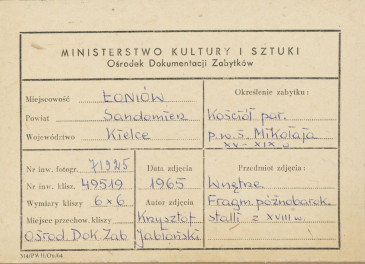 MINISTERSTWO KULTURY I SZTUKI
Ośrodek Dokumentacji Zabytków
Miejscowość ŁONIÓW
Powiat Sandomierz
Województwo Kielce
Określenie zabytku:
Kościół par.
p.w.ś. Mikołaja
XV-XIX w
Nr inw. fotogr. 71925
Nr inw. klisz. 49519
Wymiary kliszy 6x6
Miejsce przechow. kliszy
Ośrod. Dok. Zab
Data zdjęcia
1965
Autor zdjęcia
Krzysztof
Jabłoński
Przedmiot zdjęcia:
Wnętrze
Fragm. późnobarok.
stalli z XVIII w.